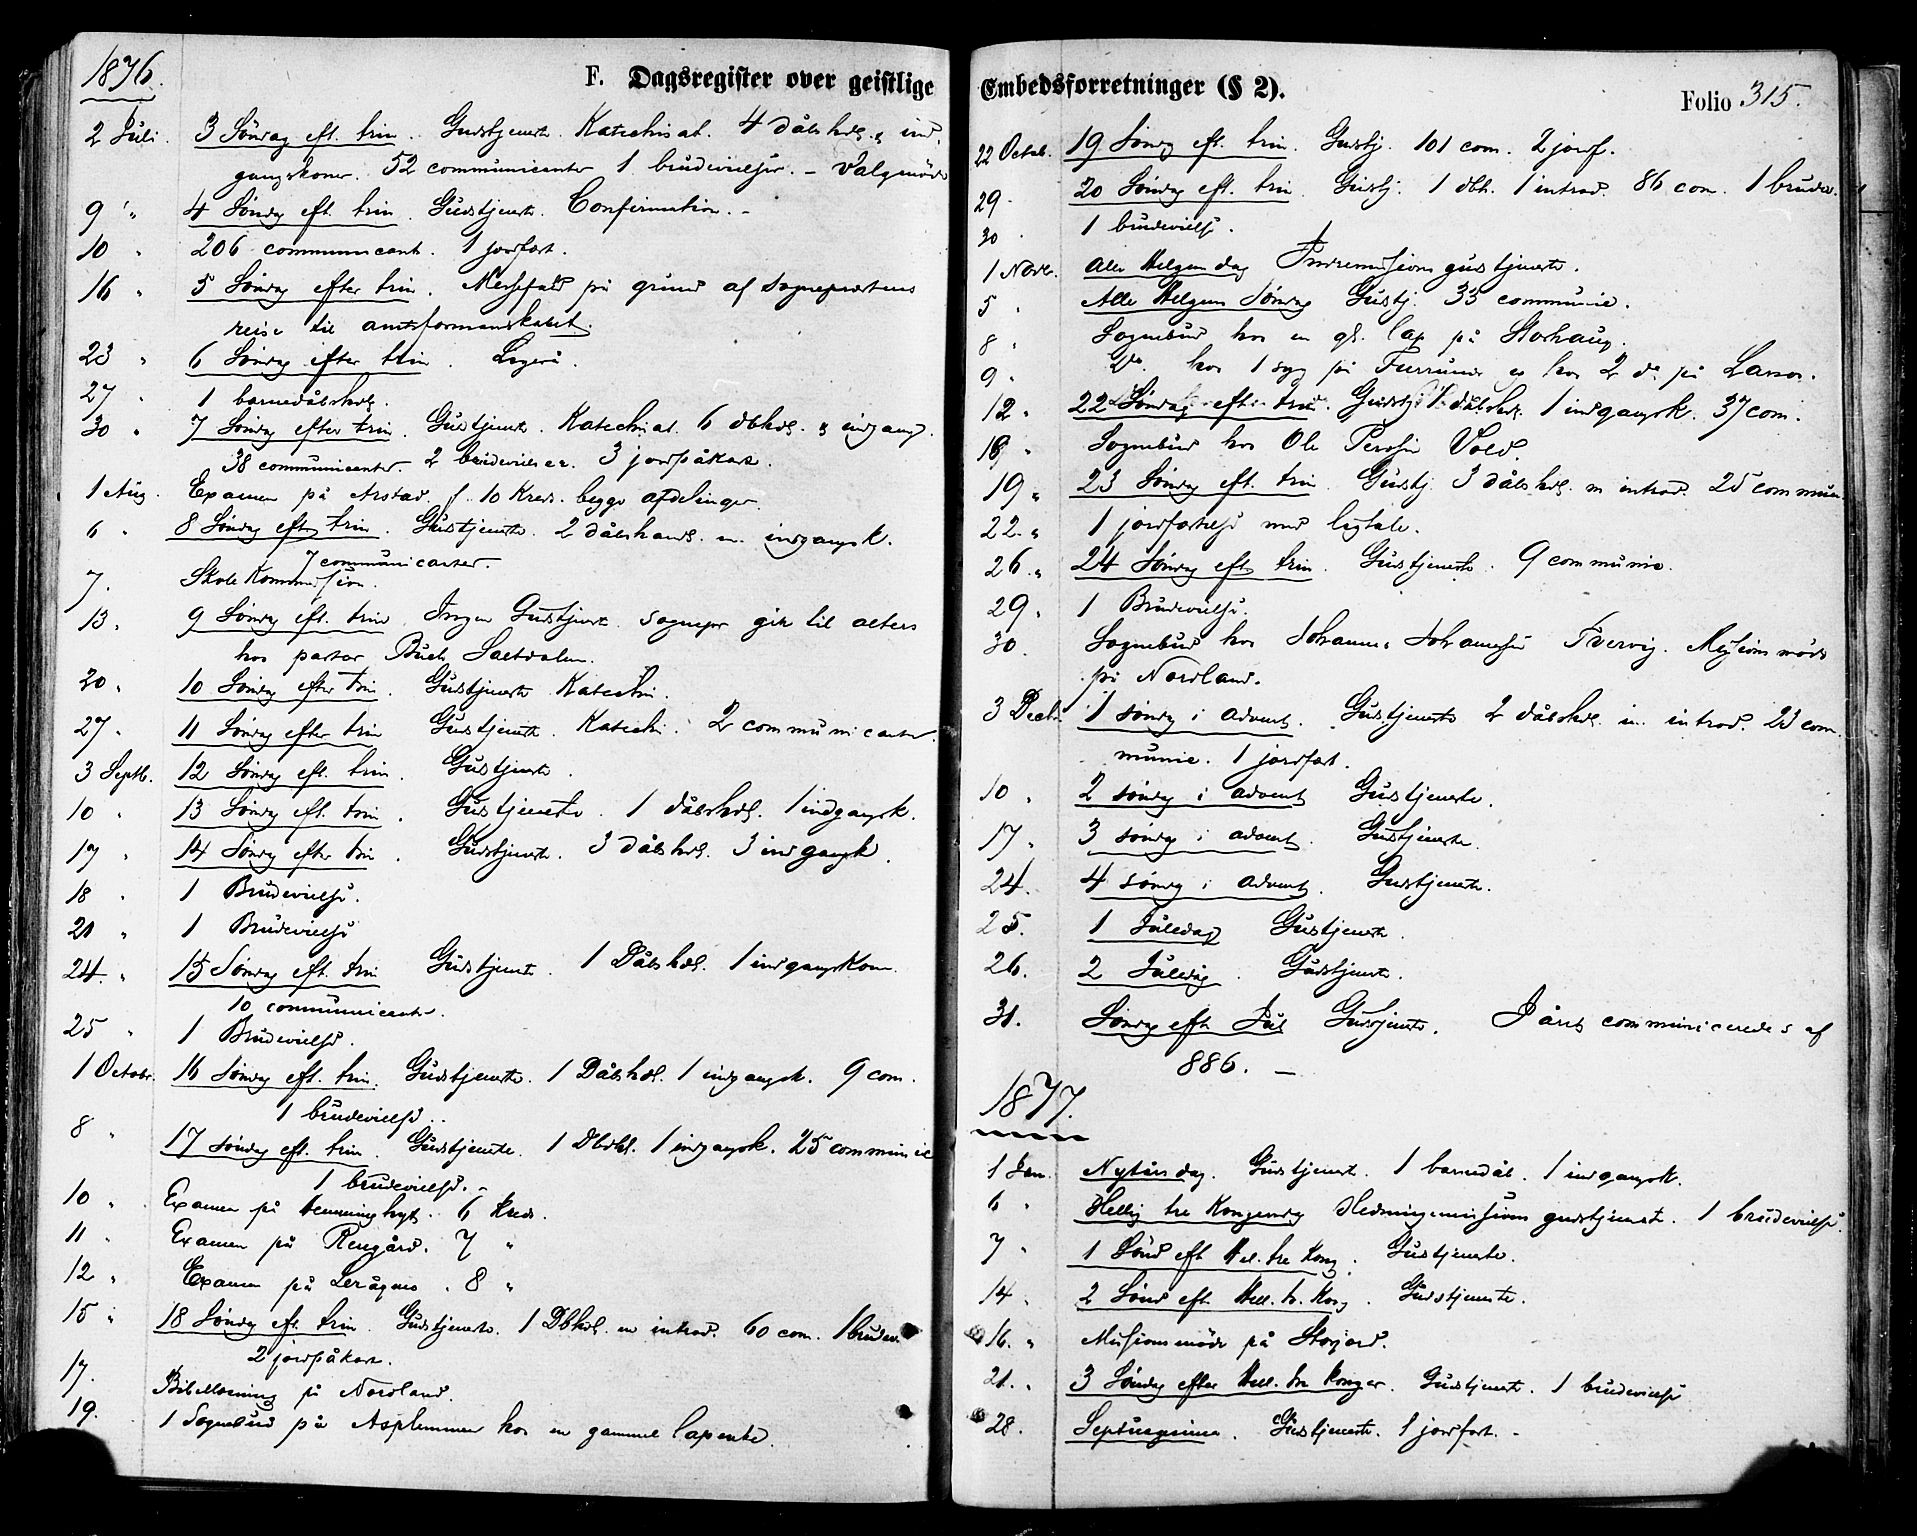 1876.
F. Dagsregister over geistlige
2 Juli. 3 Söndag eft. trin. Gudstjeneste. Katechisat. 4 dåbshdl. & ind
gangskoner. 52 communicanter 1 brudevielser. – Valgmöde
9 " 4 Söndg eft. trin. Gudstjenest. Confirmation. –
10 " 206 communicant. 1 jordfæst.
16 " 5 Söndag efter trin. Messefald på grund af Sogneprestens
reise til amtsformandskabet.
23 " 6 Söndag efter trin.
27 " 1 barnedåbshdl.
30 " 7 Söndag efter trin. Gudstjeneste. Katechisat. 6 dbhdl. & indgang.
38 communicanter. 2 brudevielser. 3 jordpåkast.
1 Aug. Examen på Arstad f. 10 Kreds. begge afdelinger.
6 " 8 Söndag eft. trin. Gudstjeneste. 2 dåbshandl. m. indgangsk.
7 communicanter.
7. Skole Kommission.
13. 9 Söndg eft. trin. Ingen Gudstjenest. Sognepr gik til alters
hos pastor Buch Saltdalen.
20 " 10 Söndag efter trin. Gudstjeneste Katechi.
27 " 11 Söndag efter trin Gudstjeneste. Katechi. 2 communicanter.
3 Septb. 12 Söndg eft. trin. Gudstjeneste.
10 " 13 Söndg eft. trin. Gudstjeneste. 1 dåbshdl. 1 indgangsk.
17 " 14 Söndg efter trin. Gudstjeneste. 3 dåbshdl. 3 indgangsk.
18 " 1 Brudevielse.
21 " 1 Brudevielse
24. " 15 Söndag eft. trin Gudstjenest. 1 Dåbshdl. 1 indgangskone.
10 communicanter.
25 " 1 Brudevielse.
1 Octobr. 16 Söndag eft. trin. Gudstjeneste. 1 Dåbshdl. 1 indgangsk. 9 com.
1 brudevielse.
8 " 17 söndag eft. trin. Gudstjeneste. 1 Dbshdl. 1 indgangsk. 25 communic
1 brudevielse. –
10 " Examen på 6 Kreds.
11 " Examen på Rengård. 7 "
12 " Examen på Lerågnes. 8 "
15 " 18 Söndag eft. trin. Gudstjeneste. 1 Dbhdl. m introd. 60 com. 1 brudev.
2 jordpåkast.
17. Bibellæsning på Nordland.
19. 1 Sognebud på hos en gammel lapenke.
Embedsforretninger (§ 2).
Folio 315.
22 Octob. 19 Söndg eft. trin. Gudstj. 101 com. 2 jordf.
29 20 Söndag eft. trin. Gudstj. 1 dbh. 1 introd. 86 com. 1 brudev.
30 1 brudevielse.
1 Novb. Alle Helgen dag Indremissions gudstjeneste.
5 " Alle Helgens Söndag Gudstj. 33 communic.
8 " Sognebud hos en gl. lap på Storhaug.
9 " Do. hos 1 syg på Furrumo og hos 2 do. på
12 " 22 Söndag eft. trin. Gudstj. 1 dåbshdl. 1 indgangsk. 37 com.
Sognebud hos Ole Persen Vold.
19 " 23 Söndag eft. trin. Gudstj. 3 dåbshdl. m introd. 25 commun
22. " 1 jordfæstelse med ligtale.
26. " 24 Söndag eft. trin. Gudstjeneste. 9 communic.
29 " 1 Brudevielse.
30. Sognebud hos Johannes Johannesen Tvervig. Missions möde
på Nordland.
3 Decbr. 1 söndg i advent. Gudstjeneste 2 dåbshdl. m. introd. 23 com.
munic. 1 jordfæst.
10 " 2 söndg i advent Gudstjeneste.
17 " 3 söndg i advent. Gudstjeneste.
24. 4 söndg i advent. Gudstjeneste.
25. 1 Juledag Gudstjeneste.
26. 2 Juledag. Gudstjeneste.
31. Söndag eft. Jul Gudstjeneste. I året communiceredes af
886. –
1877.
1 Jan. Nytårsdag. Gudstjenest. 1 barnedåb. 1 indgangsk.
6 " Hellig tre Kongersdg Hedningemissions gudstjenest. 1 brudevielse.
7 " 1 Sönd eft Hel. tre Kong. Gudstjeneste.
14. " 2 Sönd eft. Hell. tr. Kong. Gudstjeneste.
16. " Missionsmöde på Storjord.
21. " 3 Söndag efter Hell. tre Konger. Gudstjeneste. 1 brudevielse
28. Septuagesima. Gudstjeneste. 1 jordfæst. –